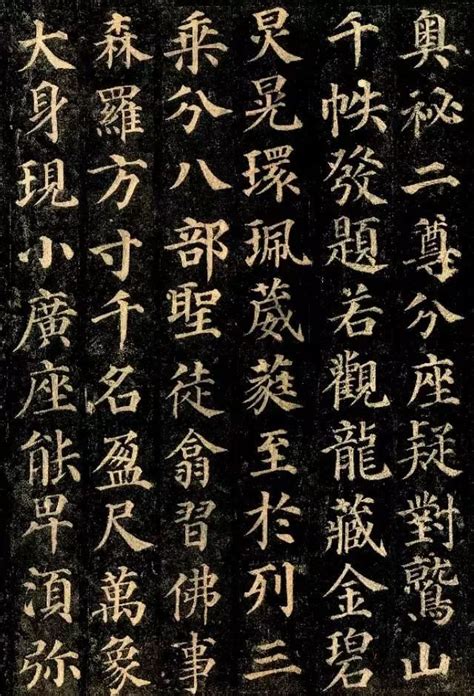 奥祕二尊分座疑對鷲山
千帙發題若觀龍藏金碧
炅晃環珮葳蕤至於列三
乘分八部聖徒翕習佛事
森羅方寸千名盈尺萬象
大身現小廣座能卑須弥